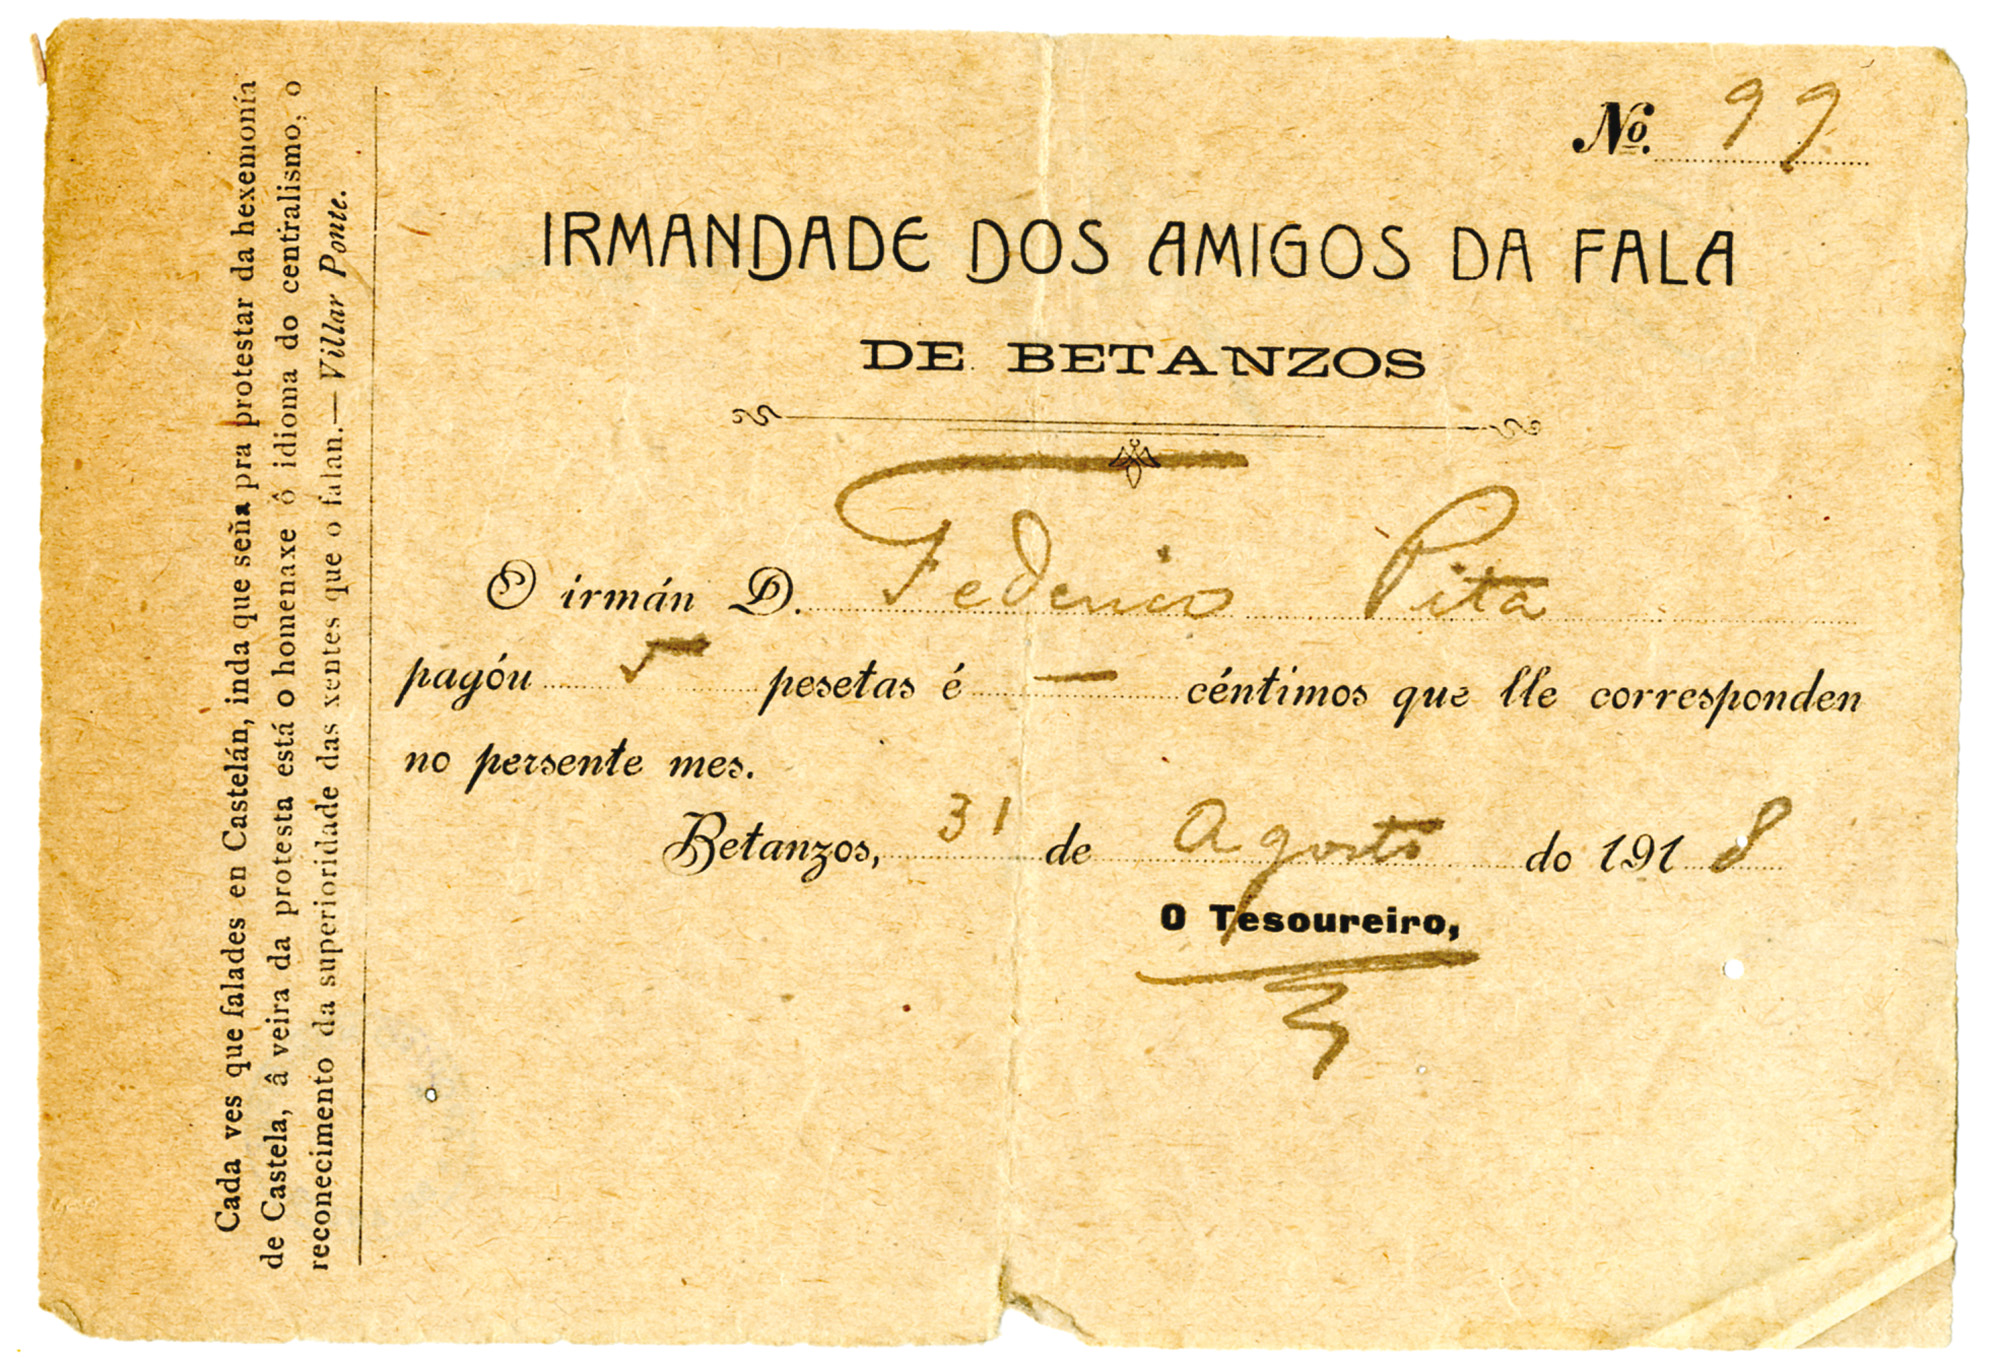 Cada ves que falades en Castelán, inda que seña pra protestar da hexemonía
de Castela, â veira da protesta está o homenaxe ô idioma do centralismo, o
reconecimento da superioridade das xentes que o falan.— Villar Ponte.
No. 99
IRMANDADE DOS AMIGOS DA FALA
DE BETANZOS
O irmán D. Federico Pita
pagóu 5 pesetas é — céntimos que lle corresponden
no persente mes.
Betanzos, 31 de Agosto do 1918
O Tesoureiro,